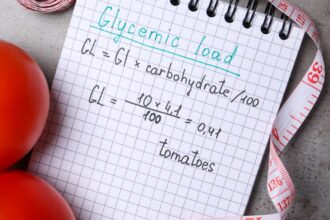 Glycemic load
GL = GI × carbohydrate/100
GL = 10 × 4,1 / 100 = 0,41
tomatoes
39